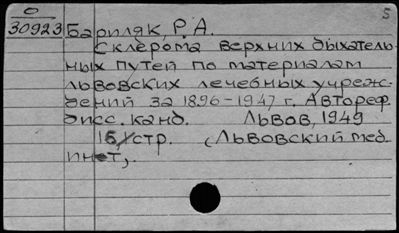 5
0
30923 Бариляк, Р. А.
Склерома верхних дыхатель-
ных путей по материалам
львовских лечебных учреж-
дений за 1896-1947 г. Автореф.
дисс. канд. Львов, 1949
15 стр. (Львовский мед.
ин-т).